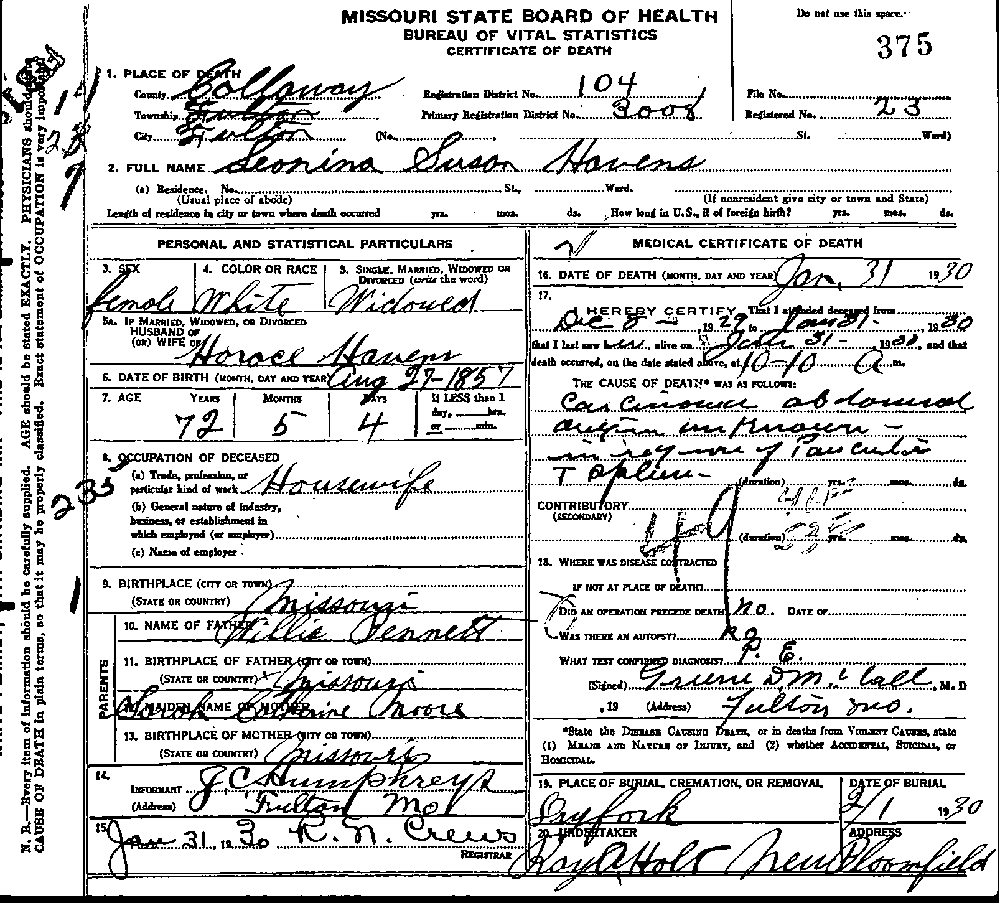 MISSOURI STATE BOARD OF HEALTH
BUREAU OF VITAL STATISTICS
CERTIFICATE OF DEATH
Do not use this space.
375
1. PLACE OF DEATH
County Callaway Registration District No. 104 File No.
Township Fulton Primary Registration District No. 3008 Registered No. 23
City Fulton (No. St. Ward)
2. FULL NAME Leonina Susan Havens
(a) Residence, No. St., Ward.
(Usual place of abode) (If nonresident give city or town and State)
Length of residence in city or town where death occurred yrs. mos. ds. How long in U.S., if of foreign birth? yrs. mos. ds.
PERSONAL AND STATISTICAL PARTICULARS
3. SEX 4. COLOR OR RACE 5. SINGLE, MARRIED, WIDOWED OR DIVORCED (write the word)
female White Widowed
5a. IF MARRIED, WIDOWED, OR DIVORCED
HUSBAND OF
(OR) WIFE OF Horace Havens
6. DATE OF BIRTH (MONTH, DAY AND YEAR) Aug 27-1857
7. AGE YEARS MONTHS DAYS If LESS than 1 day, hrs. or min.
72 5 4
8. OCCUPATION OF DECEASED
(a) Trade, profession, or
particular kind of work Housewife
(b) General nature of industry,
business, or establishment in
which employed (or employer)
(c) Name of employer
9. BIRTHPLACE (CITY OR TOWN)
(STATE OR COUNTRY) Missouri
PARENTS
10. NAME OF FATHER Willie Pennett
11. BIRTHPLACE OF FATHER (CITY OR TOWN)
(STATE OR COUNTRY) Missouri
12. MAIDEN NAME OF MOTHER Sarah Catherine Moore
13. BIRTHPLACE OF MOTHER (CITY OR TOWN)
(STATE OR COUNTRY) Missouri
14.
INFORMANT J C Humphreys
(Address) Fulton Mo
15. Jan 31, 1930 R. N. Crews
REGISTRAR
MEDICAL CERTIFICATE OF DEATH
16. DATE OF DEATH (MONTH, DAY AND YEAR) Jan. 31 1930
17.
I HEREBY CERTIFY, That I attended deceased from
Dec 8 - 1929 to Jan 31- 1930
that I last saw her alive on Jan 31- 1930, and that
death occurred, on the date stated above, at 10-10 A m.
THE CAUSE OF DEATH* WAS AS FOLLOWS:
Carcinoma abdominal
origin unknown -
in region of
Spleen
(duration) yrs. mos. ds.
CONTRIBUTORY
(SECONDARY)
49
(duration) yrs. mos. ds.
18. WHERE WAS DISEASE CONTRACTED
IF NOT AT PLACE OF DEATH?
DID AN OPERATION PRECEDE DEATH? no. DATE OF
WAS THERE AN AUTOPSY? no
WHAT TEST CONFIRMED DIAGNOSIS? P. E.
(Signed) D McCall, M. D
, 19 (Address) Fulton Mo.
*State the DISEASE CAUSING DEATH, or in deaths from VIOLENT CAUSES, state
(1) MEANS AND NATURE OF INJURY, and (2) whether ACCIDENTAL, SUICIDAL, or
HOMICIDAL.
19. PLACE OF BURIAL, CREMATION, OR REMOVAL DATE OF BURIAL
Dryfork 2/1 1930
20. UNDERTAKER ADDRESS
Holt New Bloomfield
N. B.—Every item of information should be carefully supplied. AGE should be stated EXACTLY. PHYSICIANS should
CAUSE OF DEATH in plain terms, so that it may be properly classified. Exact statement of OCCUPATION is very important
235